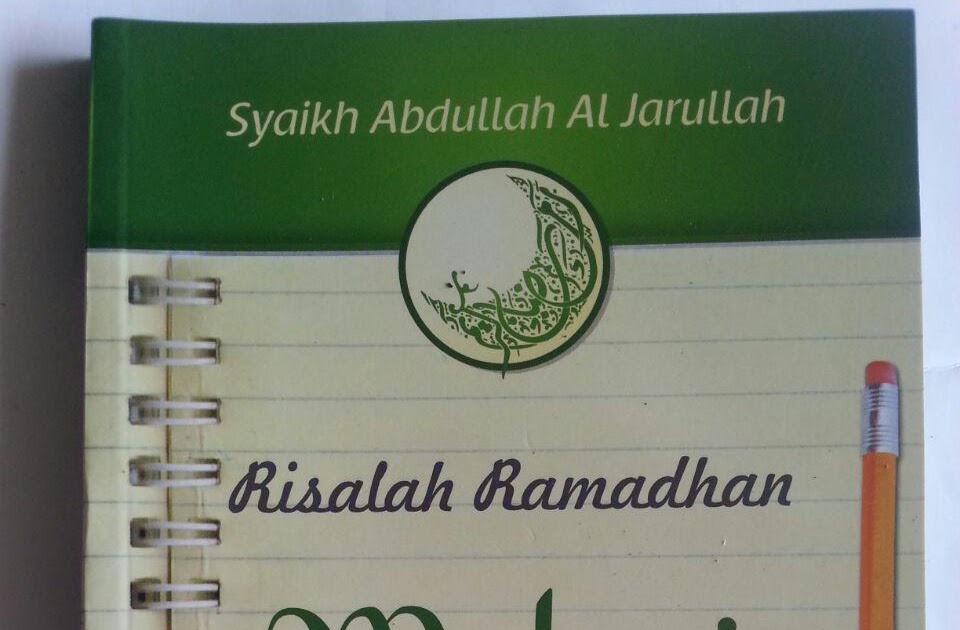 Syaikh Abdullah Al Jarullah
Risalah Ramadhan